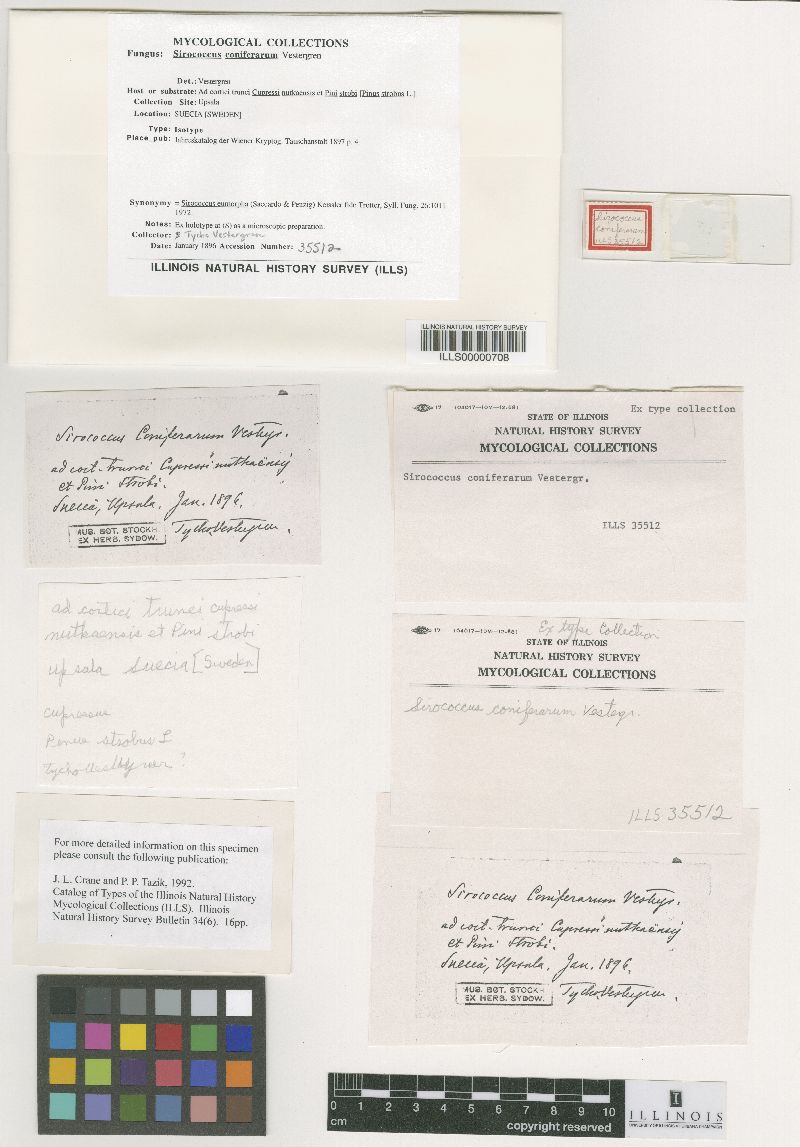 MYCOLOGICAL COLLECTIONS
Fungus: Sirococcus coniferarum Vestergren
Det.: Vestergren
Host or substrate: Ad cortici trunci Cupressi nutkaensis et Pini strobi [Pinus strobus L.]
Collection Site: Upsala
Location: SUECIA [SWEDEN]
Type: Isotype
Place pub: Jahreskatalog der Wiener Kryptog. Tauschanstalt 1897 p. 4
Synonymy = Sirococcus eumorpha (Saccardo & Penzig) Keissler fide Trotter, Syll. Fung. 26:1011
1972.
Notes: Ex holotype at (S) as a microscopic preparation.
Collector: Tycho Vestergren
Date: January 1896 Accession Number: 35512
ILLINOIS NATURAL HISTORY SURVEY (ILLS)
ILLINOIS NATURAL HISTORY SURVEY
ILLS00000708
Sirococcus
coniferarum
ILLS 35512
Sirococcus Coniferarum Vestergr.
ad cort. trunci Cupressi nutkaënsis
et Pini Strobi.
Suecia, Upsala. Jan. 1896.
MUS. BOT. STOCKH.
EX HERB. SYDOW.
Tycho Vestergren.
17 (04017—10M—12-68)
Ex type collection
STATE OF ILLINOIS
NATURAL HISTORY SURVEY
MYCOLOGICAL COLLECTIONS
Sirococcus coniferarum Vestergr.
ILLS 35512
ad cortici trunci cupressi
nutkaensis et Pini strobi
upsala Suecia [Sweden]
cupressus
Pinus strobus L
17 (04017—10M—12-68)
Ex type Collection
STATE OF ILLINOIS
NATURAL HISTORY SURVEY
MYCOLOGICAL COLLECTIONS
Sirococcus coniferarum Vestegr.
ILLS 35512
For more detailed information on this specimen
please consult the following publication:
J. L. Crane and P. P. Tazik, 1992.
Catalog of Types of the Illinois Natural History
Mycological Collections (ILLS). Illinois
Natural History Survey Bulletin 34(6). 16pp.
Sirococcus Coniferarum Vestergr.
ad cort. trunci Cupressi nutkaënsis
et Pini Strobi.
Suecia, Upsala. Jan. 1896.
MUS. BOT. STOCKH.
EX HERB. SYDOW.
Tycho Vestergren.
0 1 2 3 4 5 6 7 8 9 10
cm
copyright reserved
I
ILLINOIS
UNIVERSITY OF ILLINOIS AT URBANA-CHAMPAIGN